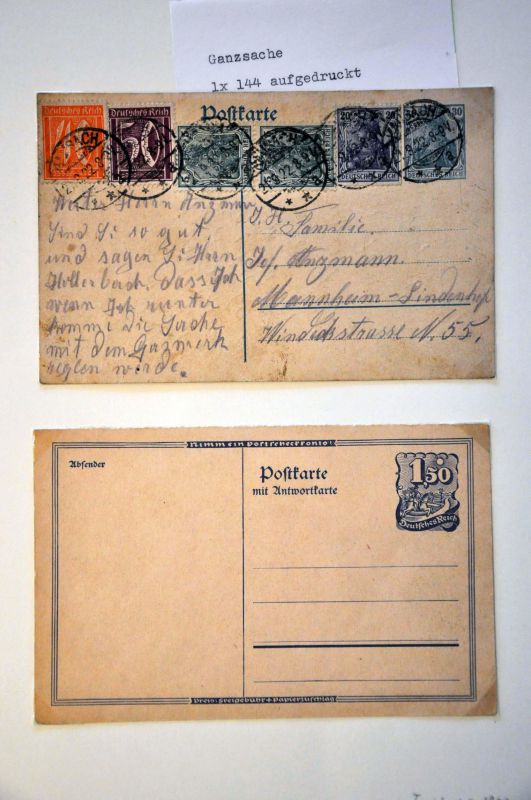 Ganzsache
1x 144 aufgedruckt
Postkarte
Deutsches Reich
Deutsches Reich
30
Herrn
Sind Si so gut
und sagen Si Herrn
Hollerbach. Dass Ich
wenn Ich runter
komme die Sache
mit dem Gazwerk
reglen werde.
Familie
Jos. Anzmann.
Mannheim-Lindenhof
Windeckstrasse N. 55.
Nimm ein Postscheckkonto!
Absender
Postkarte
mit Antwortkarte
1,50
Deutsches Reich
Preis: Freigebühr + Papierzuschlag